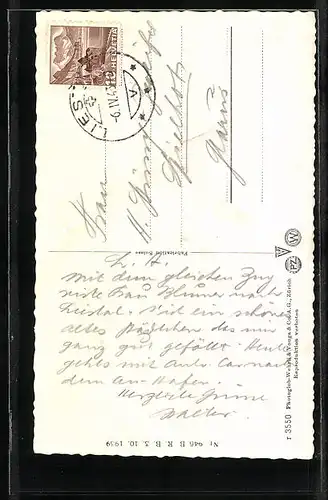 HELVETIA
LIES
Frau
Spielhof
Glarus
L. A.
Mit dem gleichen Zug
reiste Frau Blumer nach
Liestal. Ist ein schönes
altes Städtchen das mir
ganz gut gefällt. Heute
gehts mit Auto Car nach
dem
Herzliche Grüsse
Walter.
Nr 946 B R B 3. 10. 1939
r 3550 Photoglob-Wehrli & Vouga & Co. A.G., Zürich
Reproduktion verboten
PZ
W